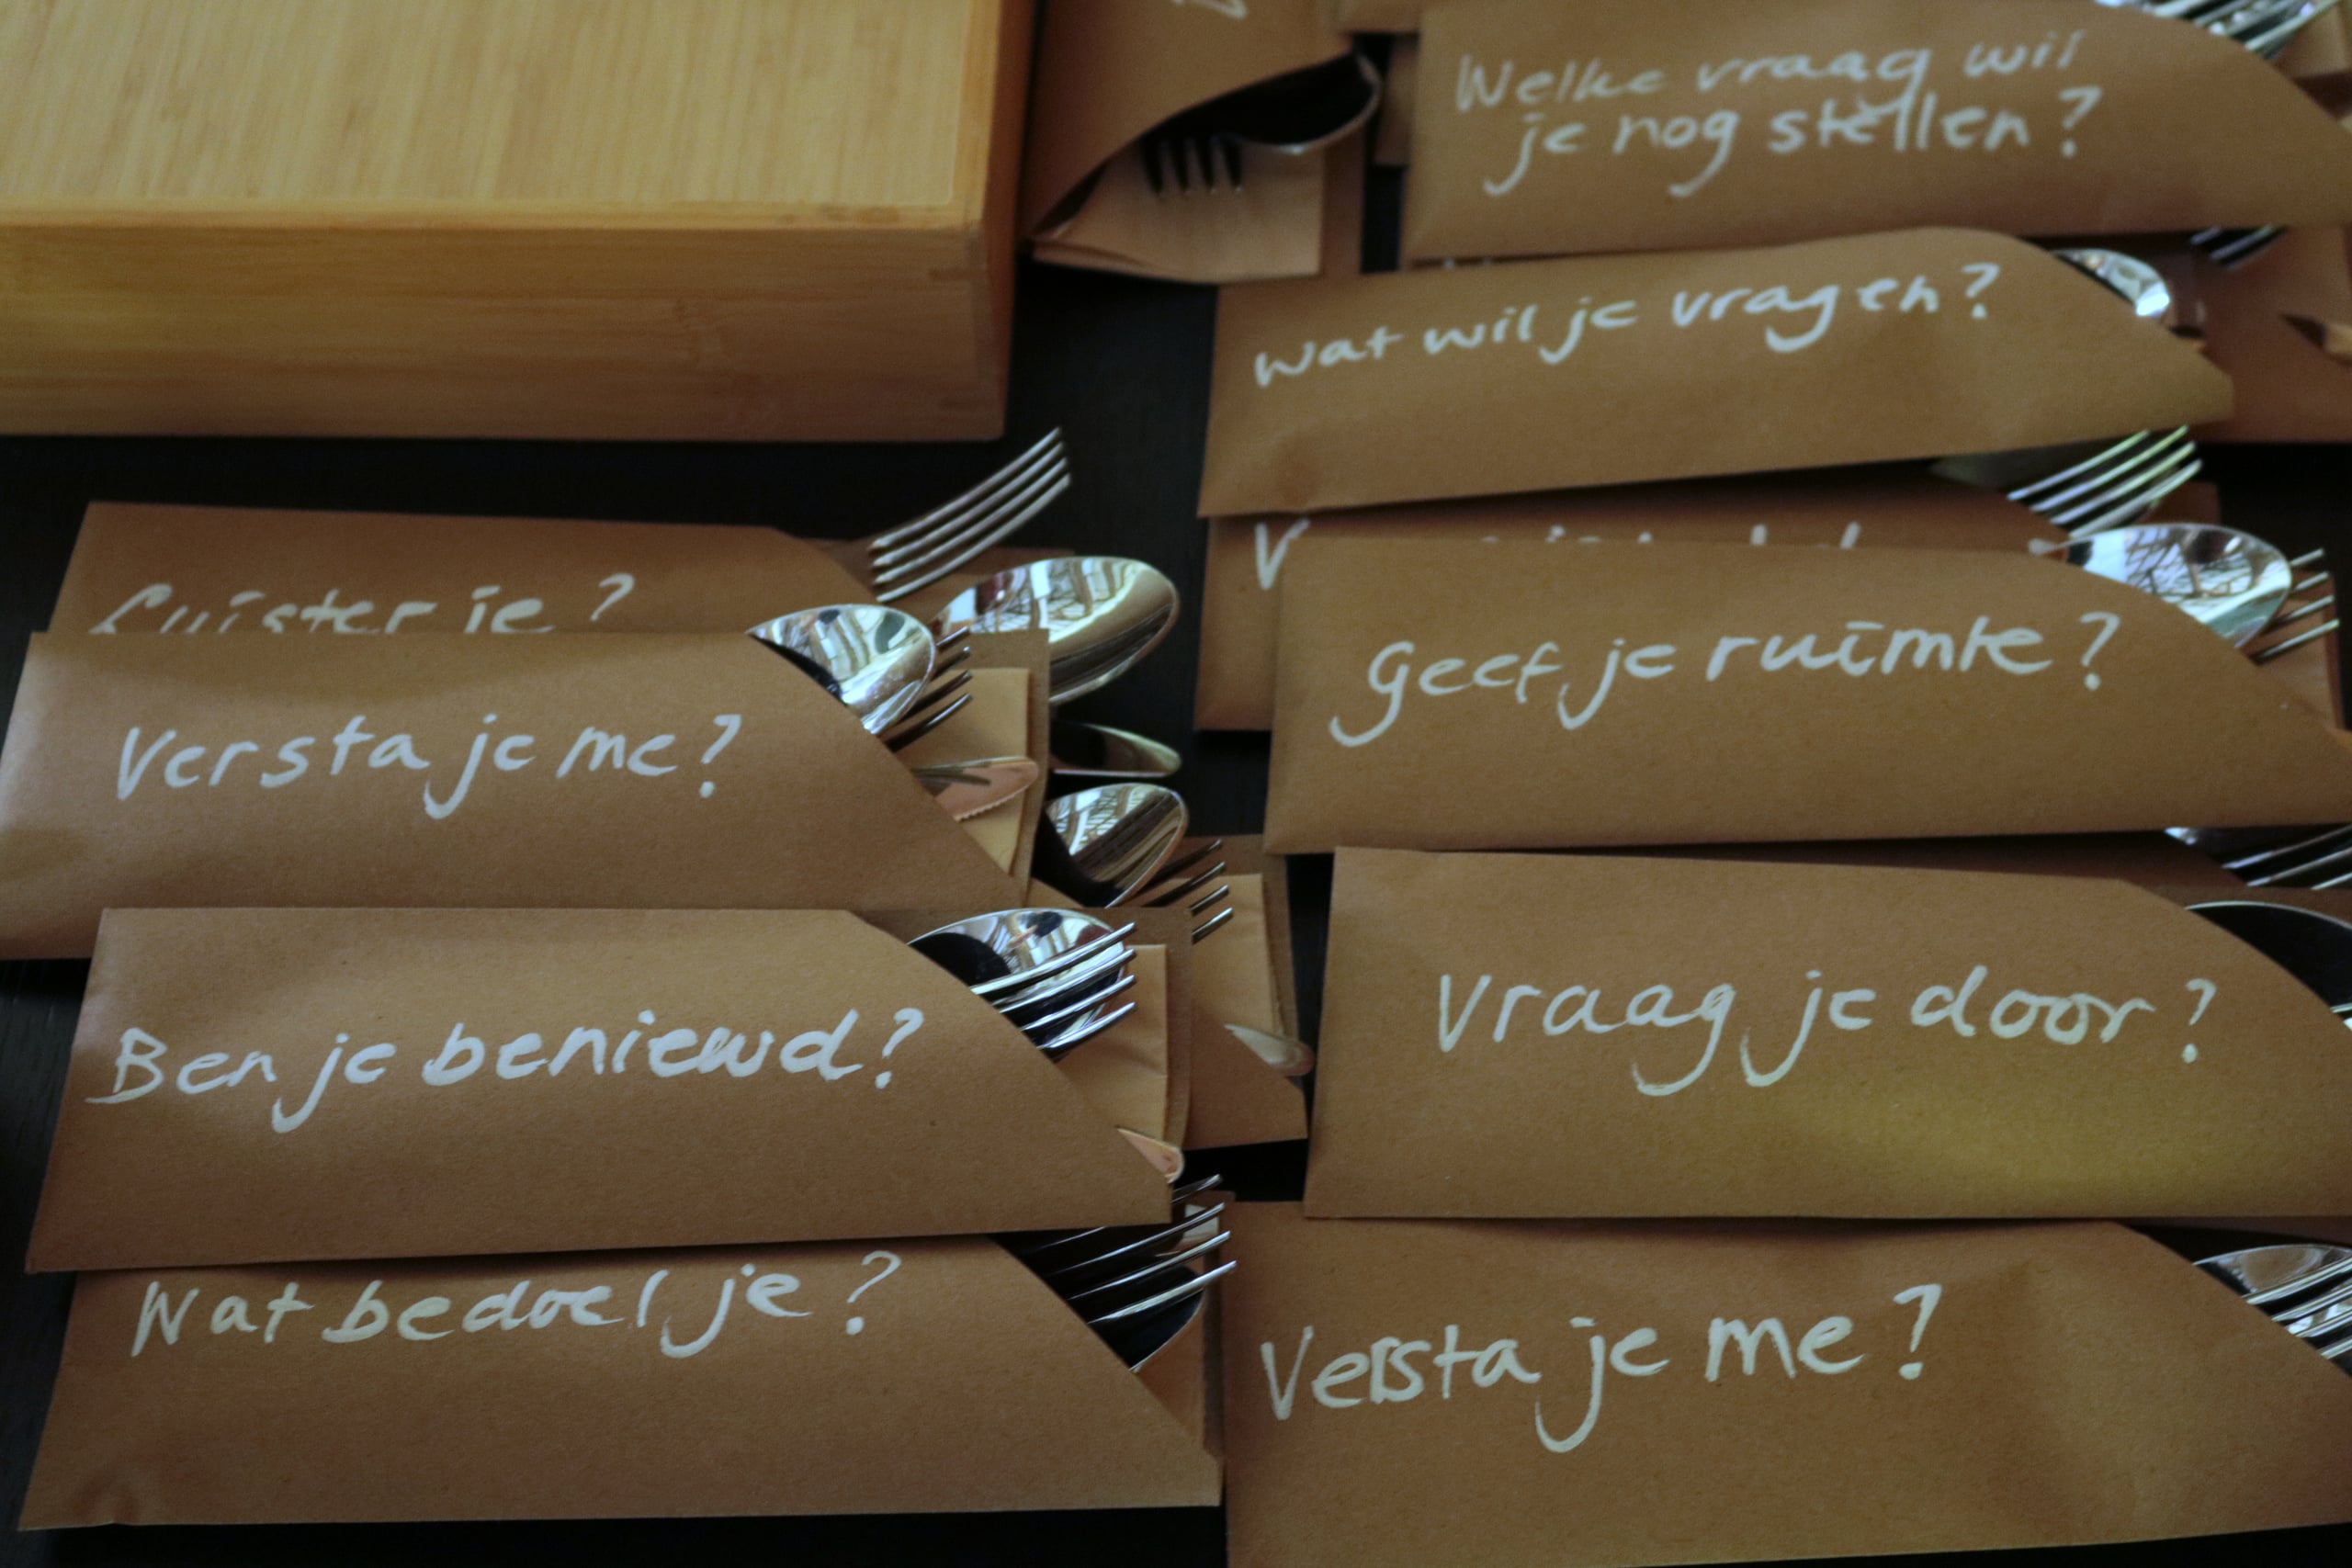 Welke vraag wil
je nog stellen?
wat wil je vragen?
Luister je?
Geef je ruimte?
Versta je me?
Vraag je door?
Ben je benieuwd?
Wat bedoel je?
Versta je me?